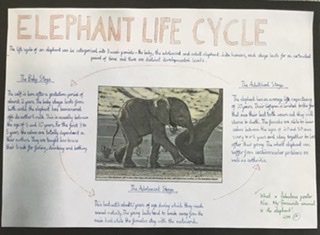 ELEPHANT LIFE CYCLE
The life cycle of an elephant can be categorised into periods - the baby, the adolescent and adult elephant. Like humans, each stage lasts for an extended
period of time and there are distinct developmental levels.
The Baby Stage
The calf is born after a gestation period of
about 2 years. The baby stage lasts from
birth until the elephant has been weaned
off its mother's milk. This is usually between
the age of 5 and 10 years. For the first 3 to
5 years, the calves are totally dependent on
their mothers. They are taught how to use
their trunk for feeding, drinking and bathing.
The Adulthood Stage
The elephant has an average life expectancy
of 70 years. Their lifespan is limited to the
that once their last teeth wear out they will
starve to death. The females are able to bear
calves between the ages of and years
every years and will stay together to look
after their young. The adult elephant can
suffer from cardiovascular problems as
well as arthritis.
The Adolescent Stage
This lasts until about years of age during which they reach
sexual maturity. The young bulls tend to break away from the
main herd while the females stay with the
What a fabulous poster
My favourite animal
is the elephant!